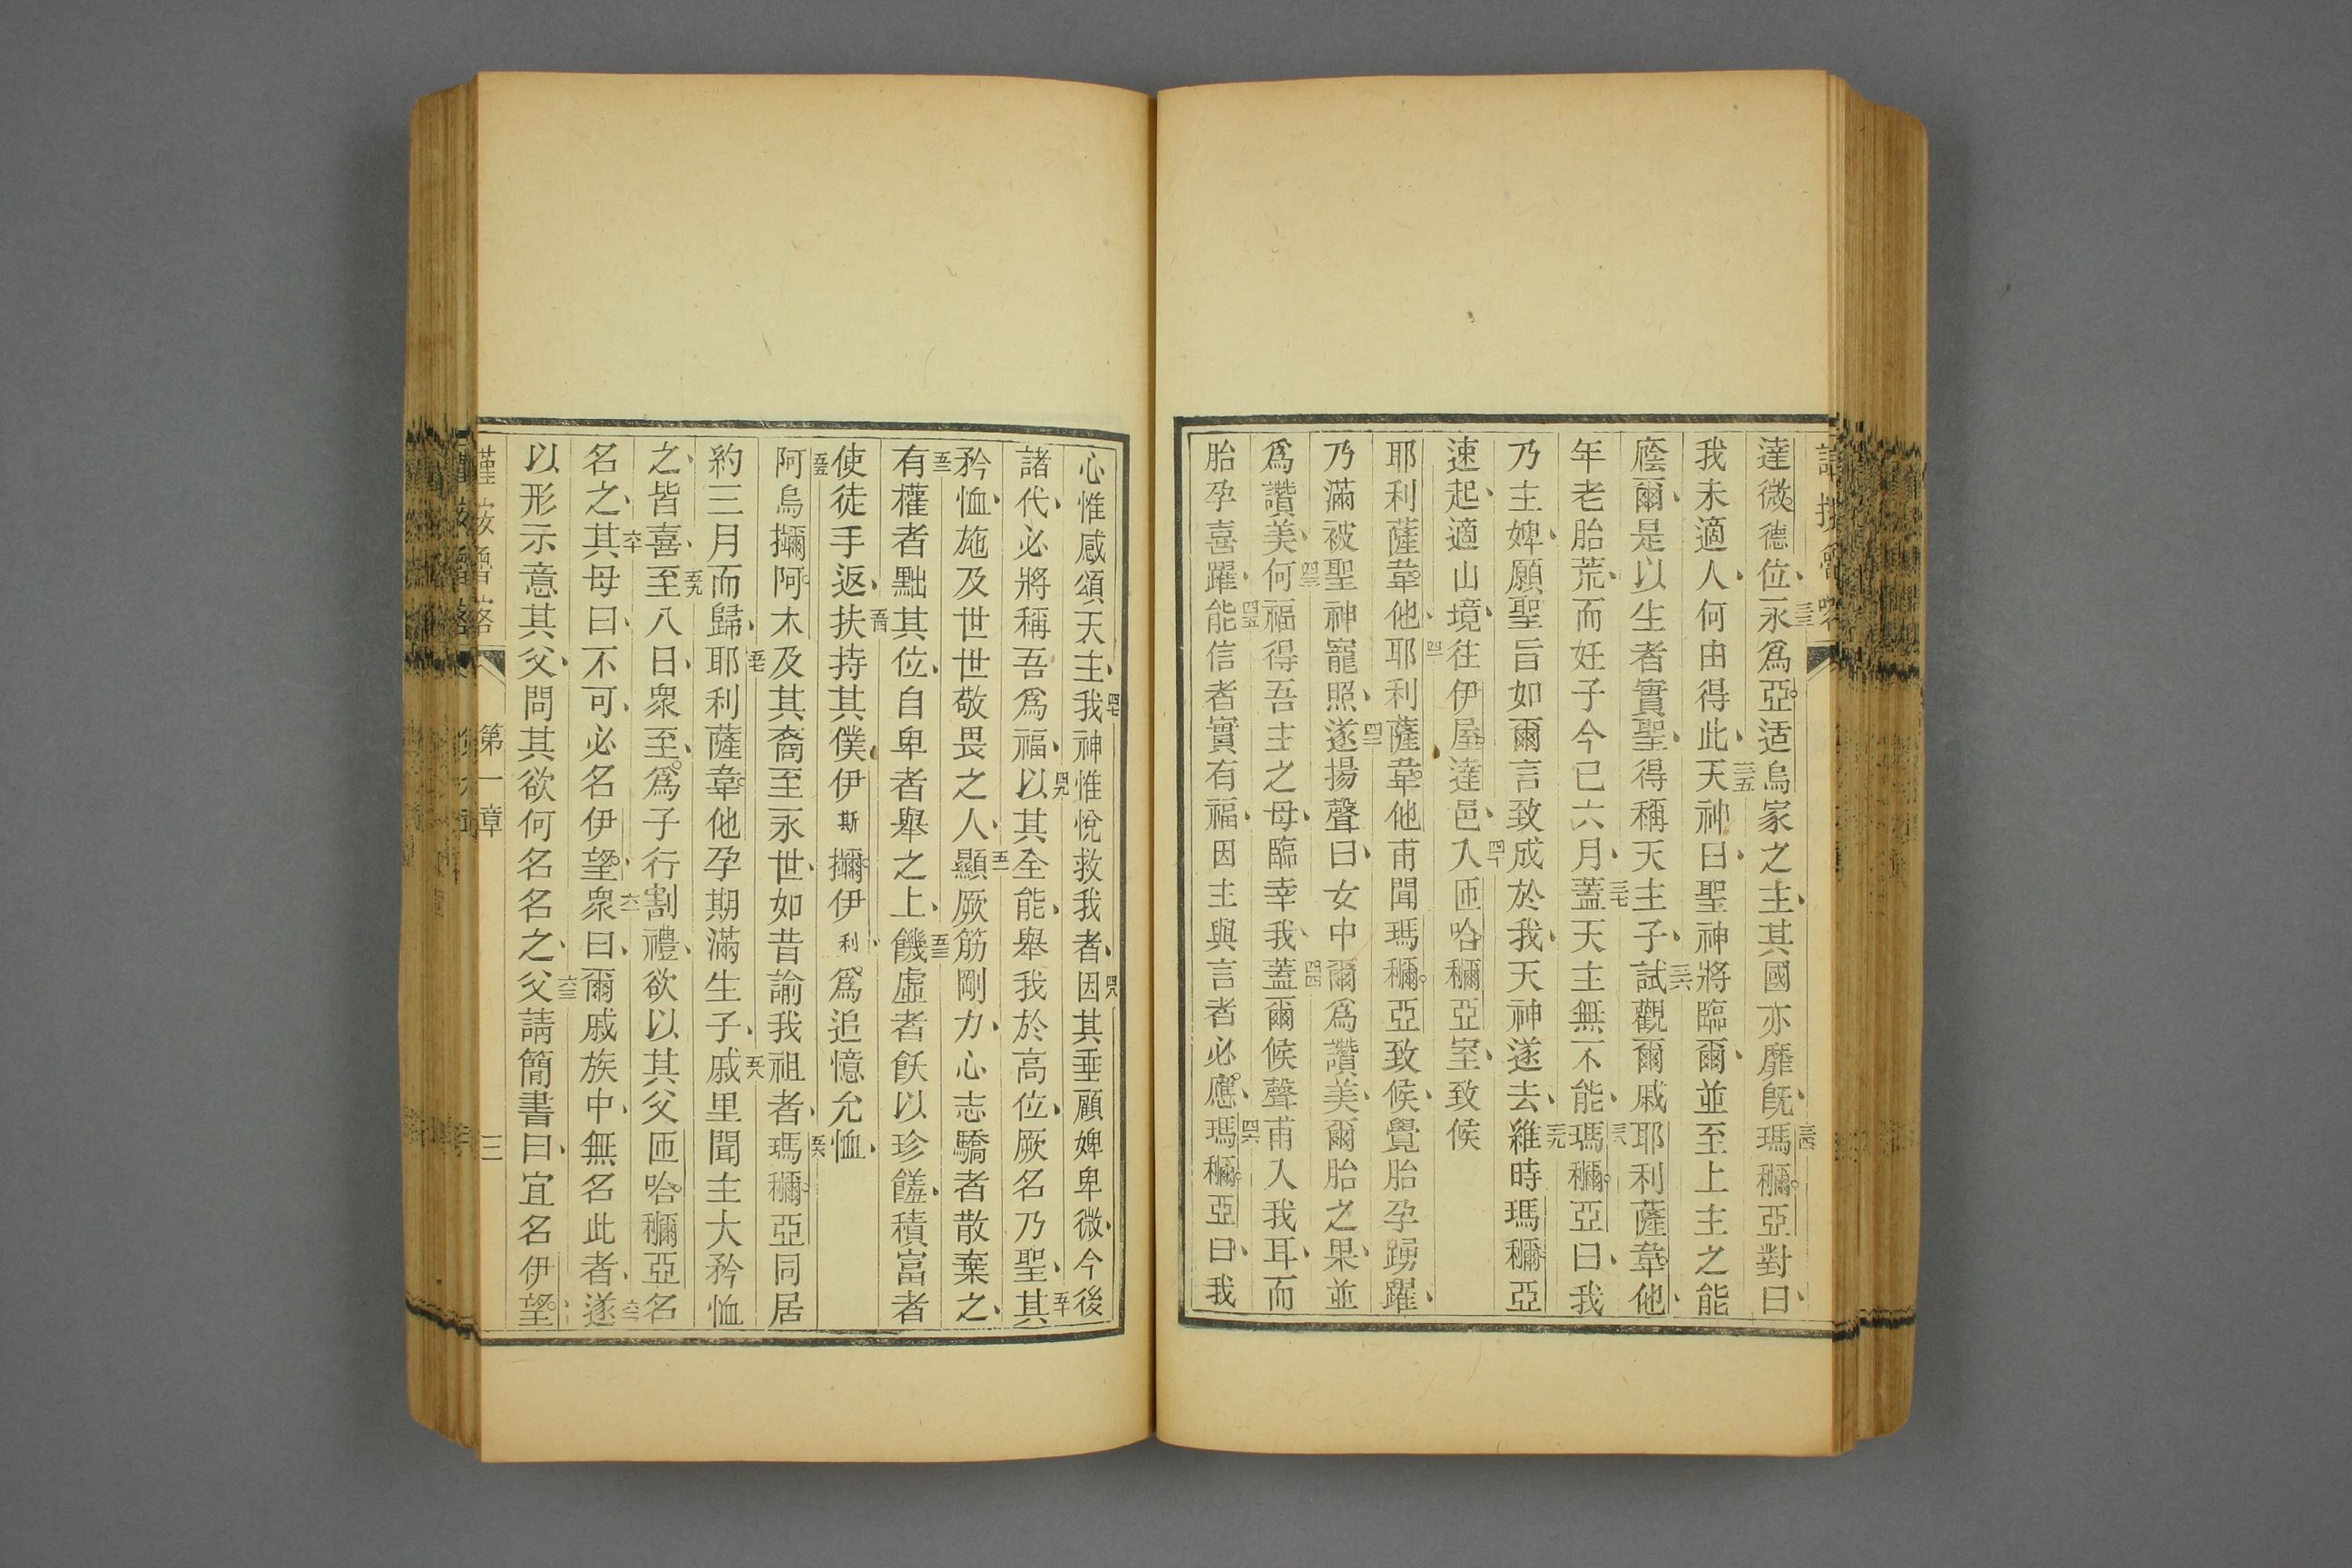 達微德位三三永爲亞适烏家之主其國亦靡旣三四瑪穪亞對曰
我未適人何由得此三五天神曰聖神將臨爾並至上主之能
廕爾是以生者實聖得稱天主子三六試觀爾戚耶利薩韋他
年老胎荒而妊子今已六月三七蓋天主無不能三八瑪穪亞曰我
乃主婢願聖旨如爾言致成於我天神遂去三九維時瑪穪亞
速起適山境往伊屋達邑四十入匝哈穪亞室致候
耶利薩韋他四一耶利薩韋他甫聞瑪穪亞致候覺胎孕踴躍
乃滿被聖神寵照四二遂揚聲曰女中爾爲讚美爾胎之果並
爲讚美四三何福得吾主之母臨幸我四四蓋爾候聲甫入我耳而
胎孕喜躍四五能信者實有福因主與言者必應四六瑪穪亞曰我
心惟感頌天主四七我神惟悅救我者四八因其垂顧婢卑微今後
諸代必將稱吾爲福四九以其全能舉我於高位厥名乃聖五十其
矜恤施及世世敬畏之人五一顯厥筋剛力心志驕者散棄之
五二有權者黜其位自卑者舉之上五三饑虛者飫以珍饈積富者
使徒手返五四扶持其僕伊斯擟伊利爲追憶允恤
五五阿烏擟阿木及其裔至永世如昔諭我祖者五六瑪穪亞同居
約三月而歸五七耶利薩韋他孕期滿生子五八戚里聞主大矜恤
之皆喜五九至八日衆至爲子行割禮欲以其父匝哈穪亞名
名之六十其母曰不可必名伊望六一衆曰爾戚族中無名此者六二遂
以形示意其父問其欲何名名之六三父請簡書曰宜名伊望
第一章
三